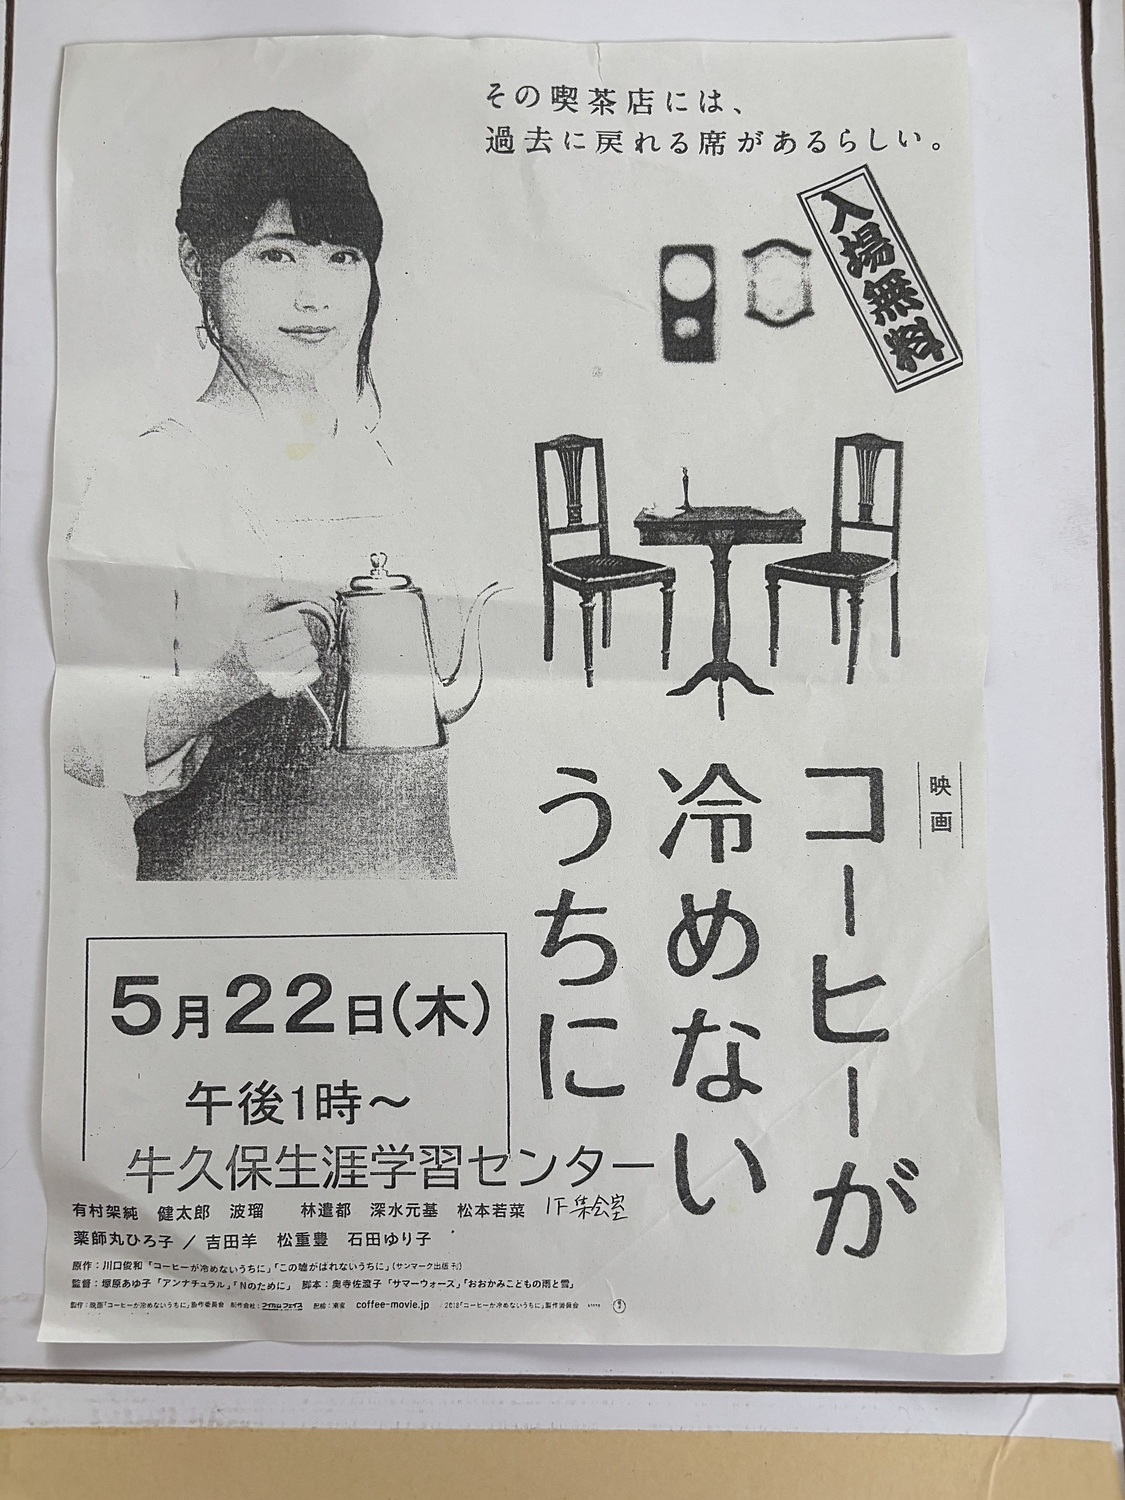 その喫茶店には、
過去に戻れる席があるらしい。
入場無料
映画
コーヒーが
冷めない
うちに
5月22日(木)
午後1時～
牛久保生涯学習センター
1F集会室
有村架純 健太郎 波瑠 林遣都 深水元基 松本若菜
薬師丸ひろ子／吉田羊 松重豊 石田ゆり子
原作：川口俊和「コーヒーが冷めないうちに」「この嘘がばれないうちに」(サンマーク出版 刊)
監督：塚原あゆ子「アンナチュラル」「Nのために」 脚本：奥寺佐渡子「サマーウォーズ」「おおかみこどもの雨と雪」
製作：映画「コーヒーが冷めないうちに」製作委員会 制作会社： 配給：東宝 coffee-movie.jp 2018「コーヒーが冷めないうちに」製作委員会